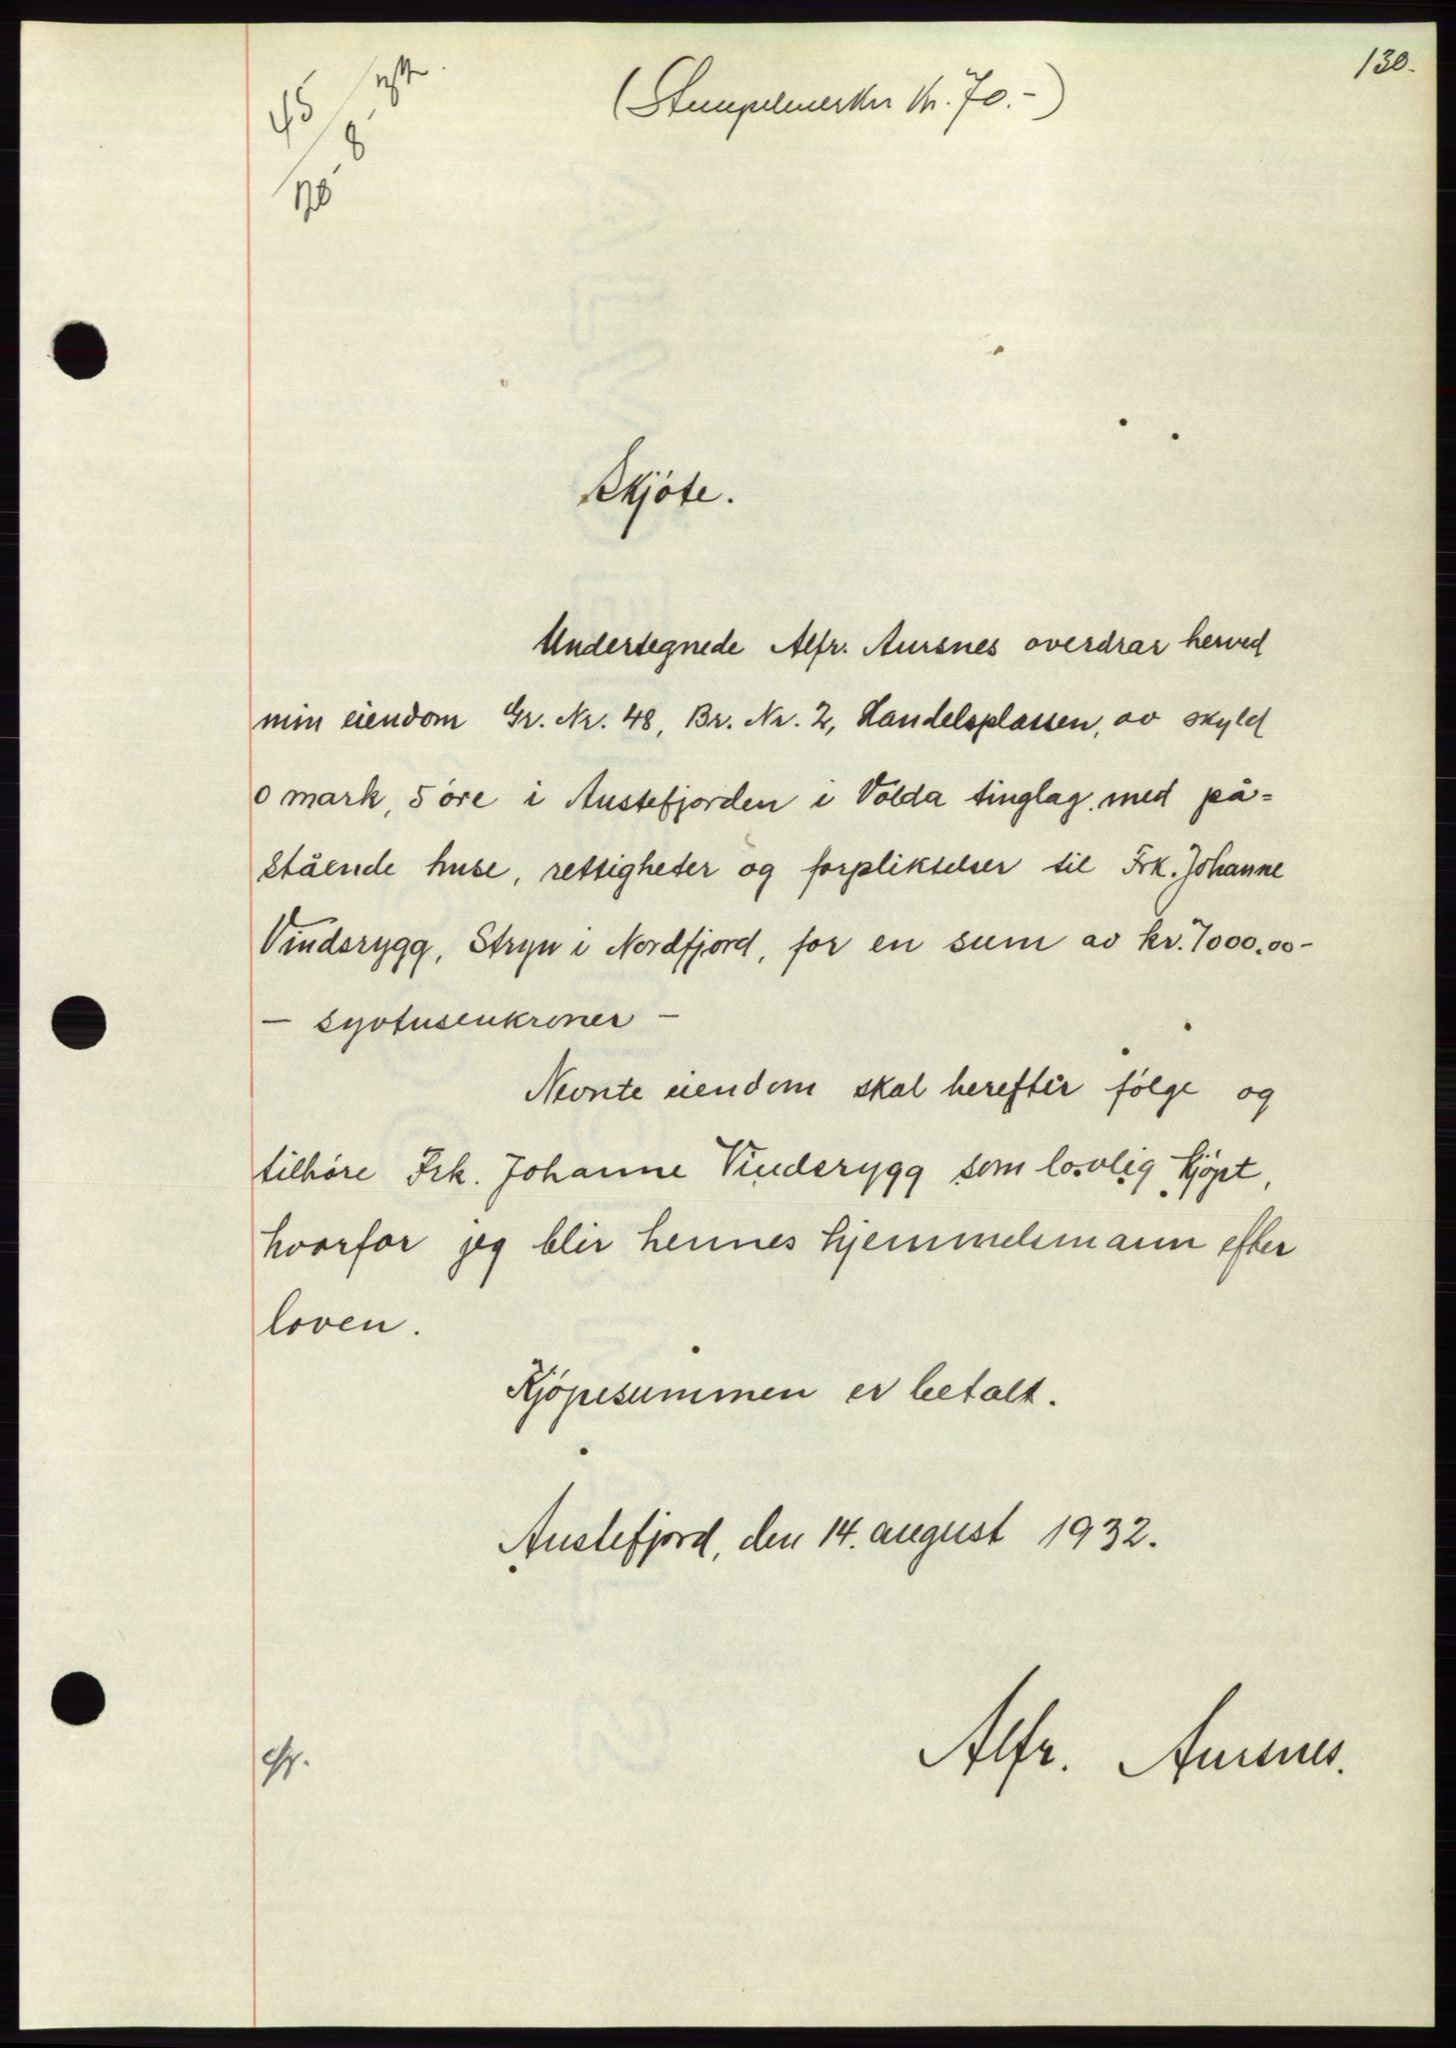 130.
(Stempelmerker Kr. 70.-)
Skjöte.
Undertegnede Alfr. Aursnes overdrar herved
min eiendom Gr. Nr. 48, Br. Nr. 2, Handelsplassen, av skyld
0 mark, 5 öre i Austefjorden i Volda tinglag, med på=
stående huse, rettigheter og forpliktelser til Frk. Johanne
Vindsrygg, Stryn i Nordfjord, for en sum av kr. 7000.00-
- syvtusenkroner -
Nevnte eiendom skal herefter fölge og
tilhöre Frk. Johanne Vindsrygg som lovlig kjöpt,
hvorfor jeg blir hennes hjemmelsmann efter
loven.
Kjöpesummen er betalt.
Austefjord, den 14. august 1932.
Alfr. Aursnes.